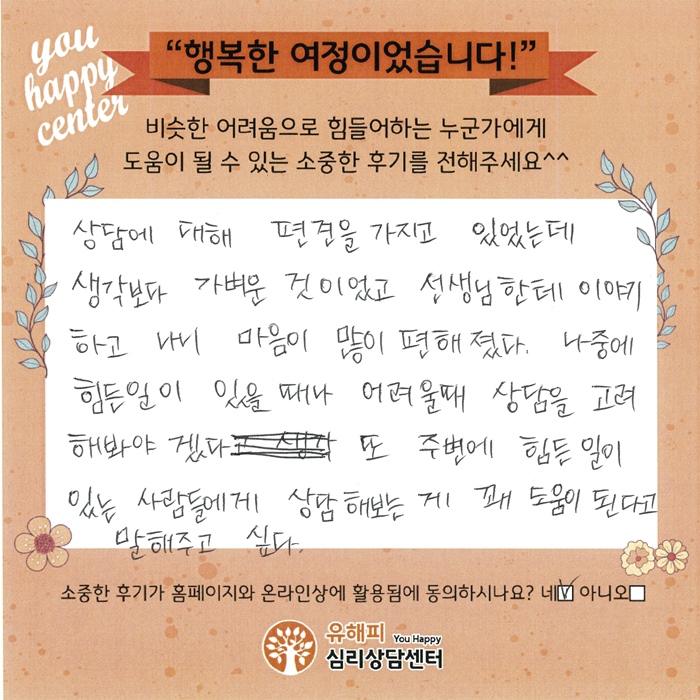 you
happy
center
“행복한 여정이었습니다!”
비슷한 어려움으로 힘들어하는 누군가에게
도움이 될 수 있는 소중한 후기를 전해주세요^^
상담에 대해 편견을 가지고 있었는데
생각보다 가벼운 것이었고 선생님한테 이야기
하고 나니 마음이 많이 편해졌다. 나중에
힘든일이 있을 때나 어려울때 상담을 고려
해봐야 겠다 또 주변에 힘든 일이
있는 사람들에게 상담 해보는 게 꽤 도움이 된다고
말해주고 싶다.
소중한 후기가 홈페이지와 온라인상에 활용됨에 동의하시나요? 네☑ 아니오□
유해피 You Happy
심리상담센터